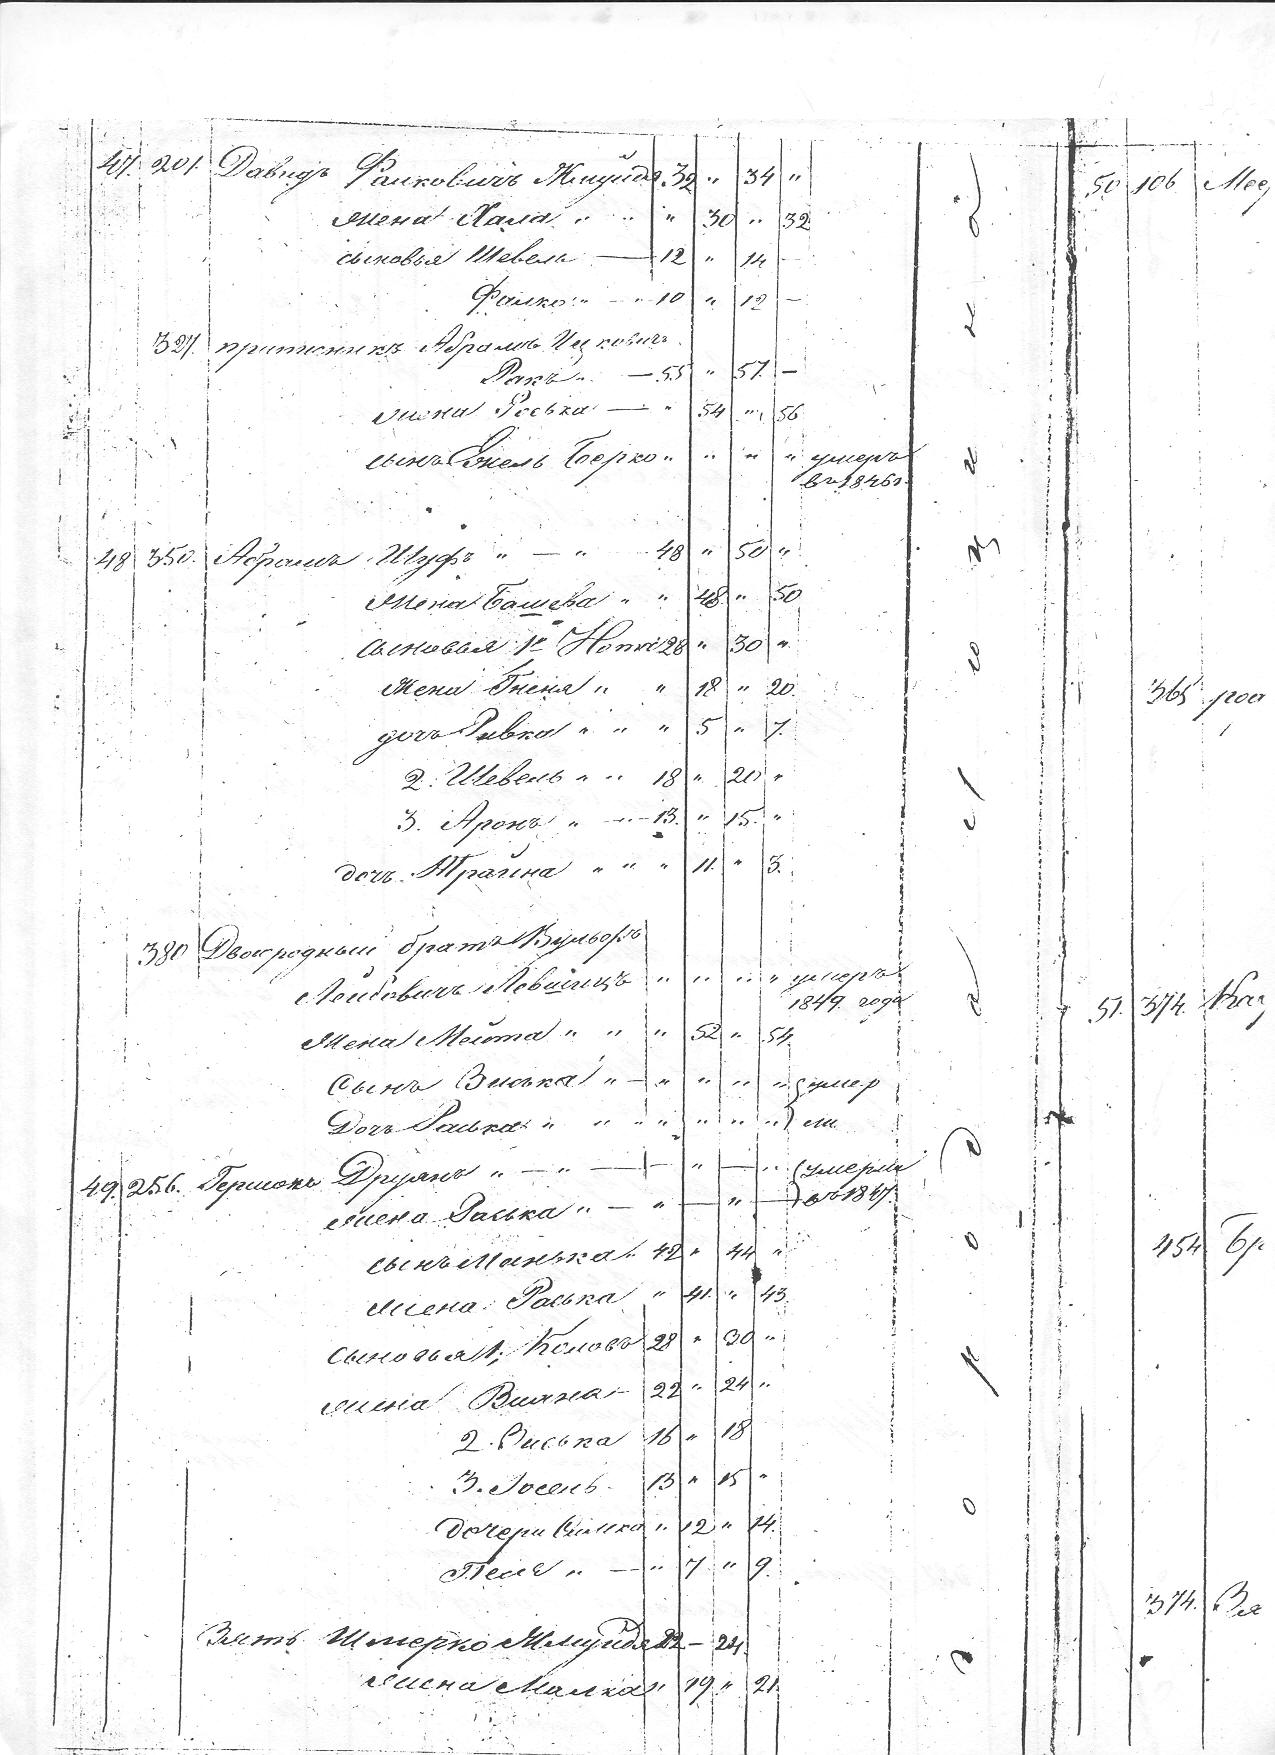 47. 201. Давидъ Фалковичъ Жмуйдя 32 " 34 "
жена Хала " " " 30 " 32
сыновья Шевель — 12 " 14 —
Фалко " — " 10 " 12 —
327. приписникъ Абрамъ Ицковичъ
Ракъ " — 55 " 57 —
жена Роська — " 54 " 56
сынъ Берко " " " " умеръ
въ 1846 г.
48 350. Абрамъ Шуфъ " — " 48 " 50 "
жена Башева " " 48 " 50
сыновья 1й 28 " 30 "
жена Гненя " " 18 " 20.
дочь Ривка " " " 5 " 7.
2. Шевель " " 18 " 20 "
3. Аронъ " — " — 13. " 15. "
дочь Трайна " " " 11. " 3.
380 Двоюродный братъ Вульфъ
Лейбовичъ " " " " умеръ
1849 года
жена " " " 52 " 54.
Сынъ Зиська " — " " " " умер
Дочь Раська " " " " " " " ли
49. 256. Гершонъ Друянъ " — " — — " — " умерли
жена Раська " — " — " — въ 1847.
сынъ Манька " 42 " 44 "
жена Раська " 41. " 43.
сыновья 1, 28 " 30 "
жена 22 " 24 "
2. Зиська 16 " 18
3. 13 " 15 "
дочери Симка " 12 " 14.
" — " 7 " 9.
Зять Шмерко Жмуйдя 22 — 24.
жена Малка " 19 " 21.
50 106
365
51. 374.
454
374.